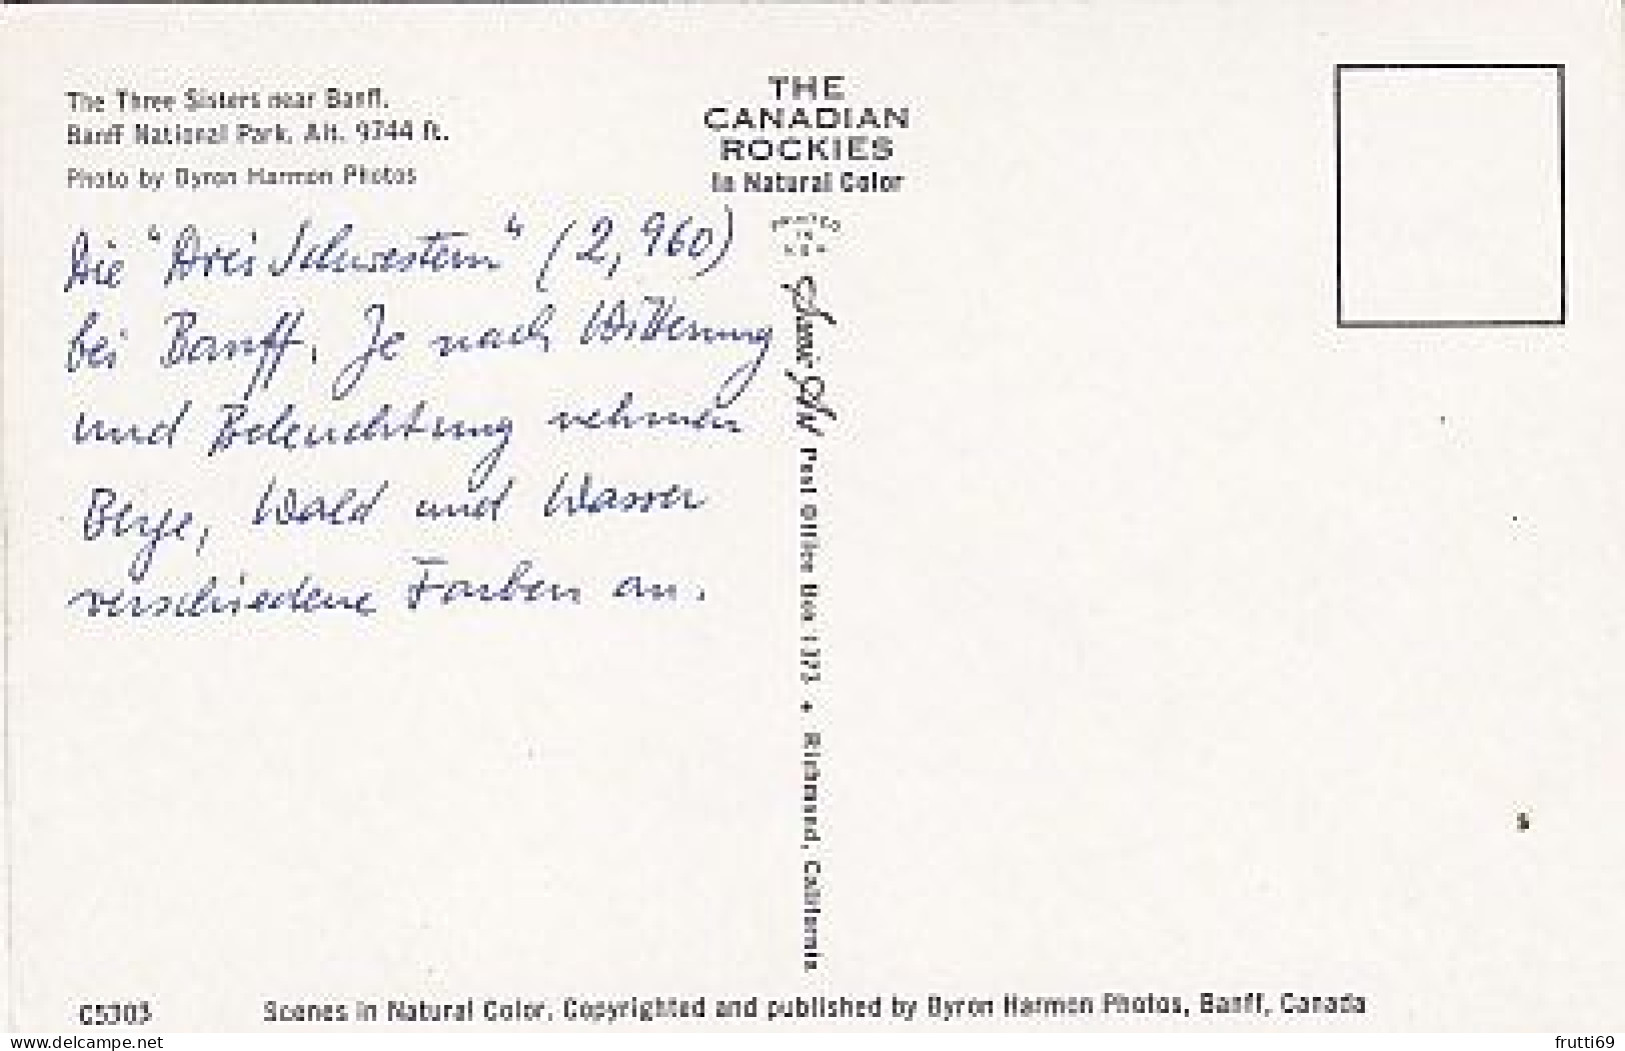 The Three Sisters near Banff.
Banff National Park, Alt. 9744 ft.
Photo by Byron Harmon Photos
THE
CANADIAN
ROCKIES
In Natural Color
PRINTED
IN
U.S.A.
Die "Drei Schwestern" (2,960)
bei Banff. Je nach Witterung
und Beleuchtung nehmen
Berge, Wald und Wasser
verschiedene Farben an.
Post Office Box 1373 ★ Richmond, California
C5303
Scenes in Natural Color. Copyrighted and published by Byron Harmon Photos, Banff, Canada
www.delcampe.net
frutti69